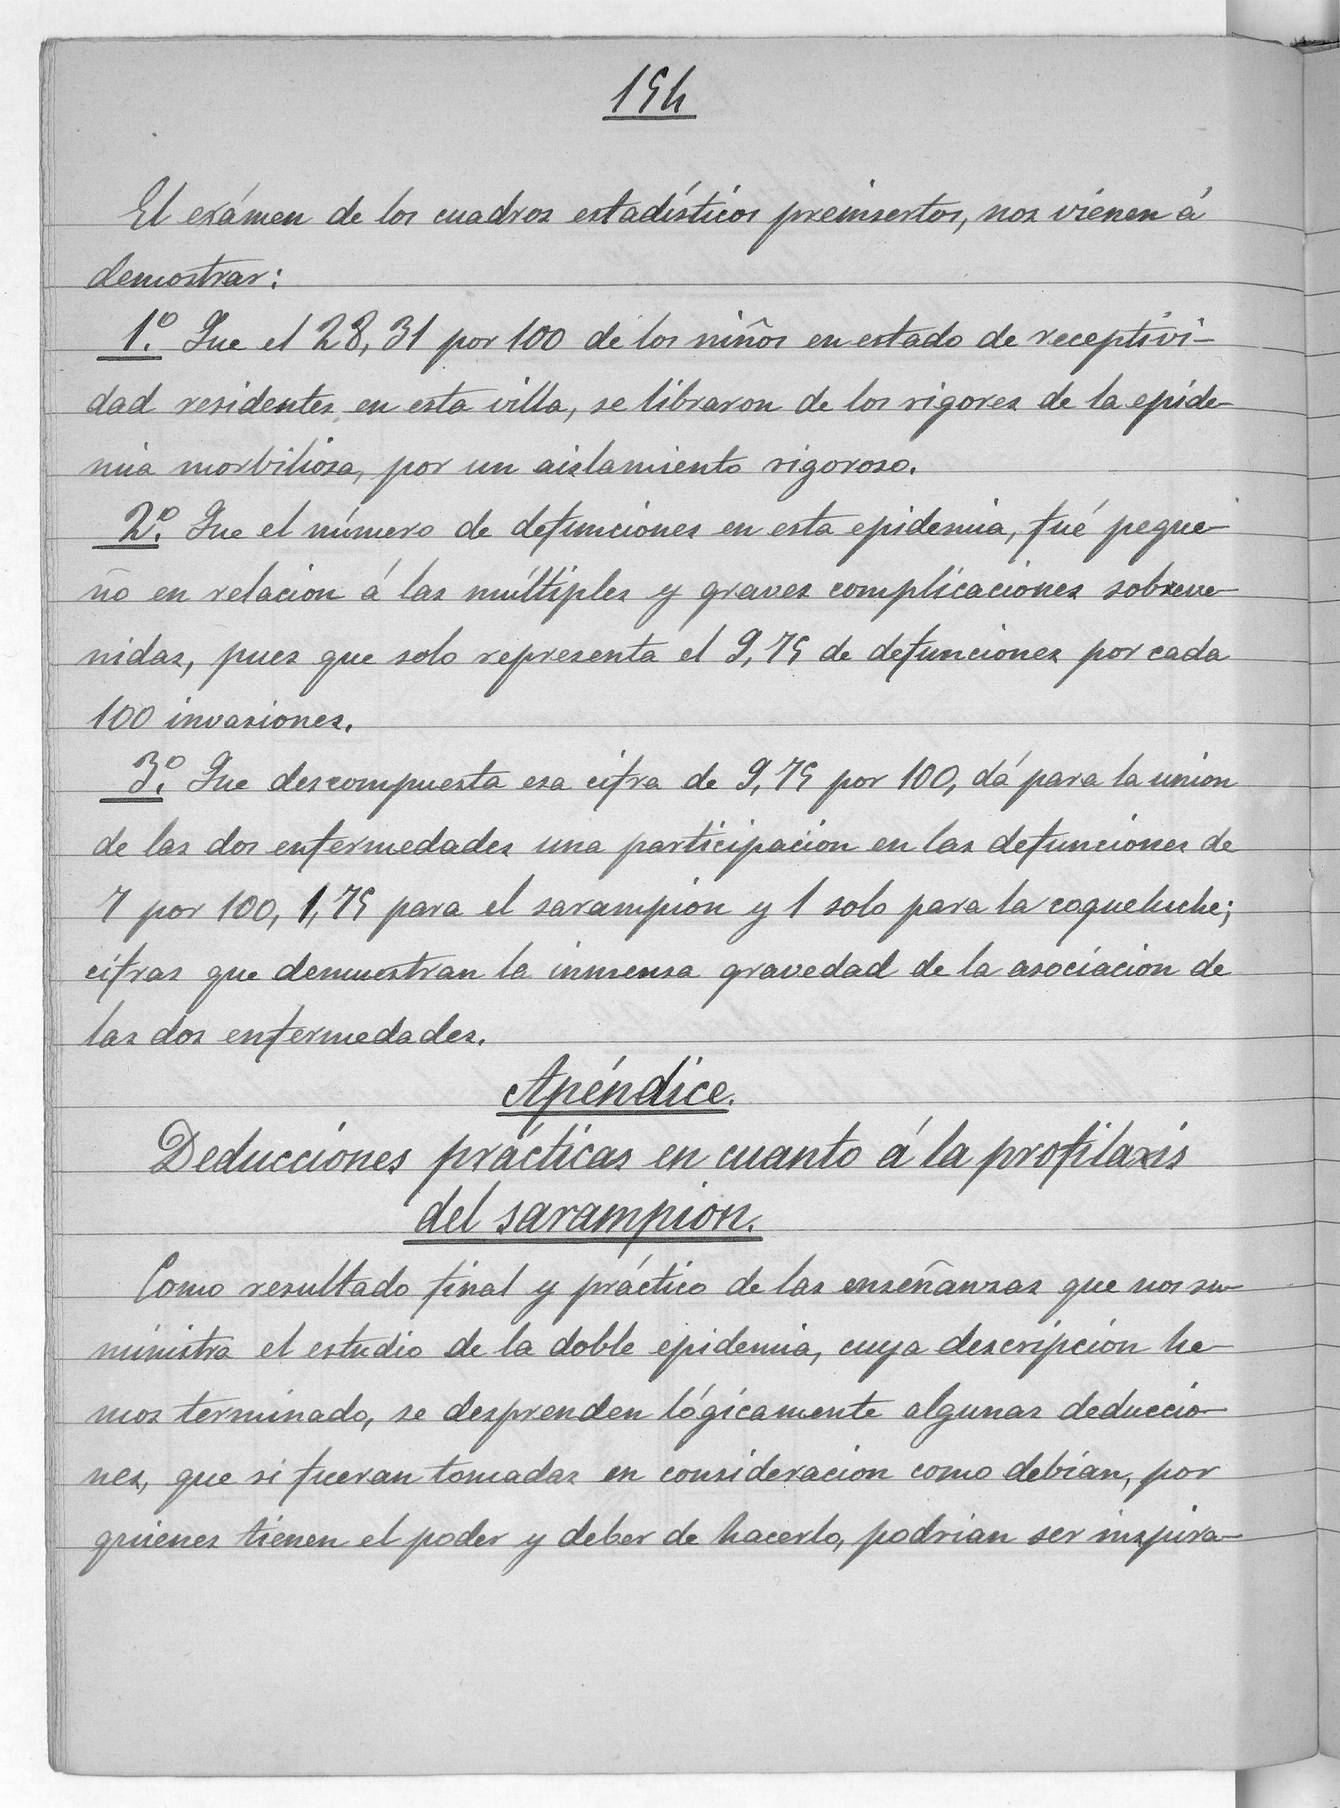 154
El exámen de los cuadros estadísticos preinsertos, nos vienen á
demostrar:
1.º Que el 28,31 por 100 de los niños en estado de receptivi-
dad residentes en esta villa, se libraron de los rigores de la epide-
mia morbiliosa, por un aislamiento rigoroso.
2.º Que el número de defunciones en esta epidemia, fué peque-
ño en relacion á las múltiples y graves complicaciones sobreve-
nidas, pues que solo representa el 9,75 de defunciones por cada
100 invasiones.
3.º Que descompuesta esa cifra de 9,75 por 100, dá para la union
de las dos enfermedades una participacion en las defunciones de
7 por 100, 1,75 para el sarampion y 1 solo para la coqueluche;
cifras que demuestran la inmensa gravedad de la asociacion de
las dos enfermedades.
Apéndice.
Deducciones prácticas en cuanto á la profilaxis
del sarampion.
Como resultado final y práctico de las enseñanzas que nos su-
ministra el estudio de la doble epidemia, cuya descripcion he-
mos terminado, se desprenden lógicamente algunas deduccio-
nes, que si fueran tomadas en consideracion como debian, por
quienes tienen el poder y deber de hacerlo, podrian ser inspira-